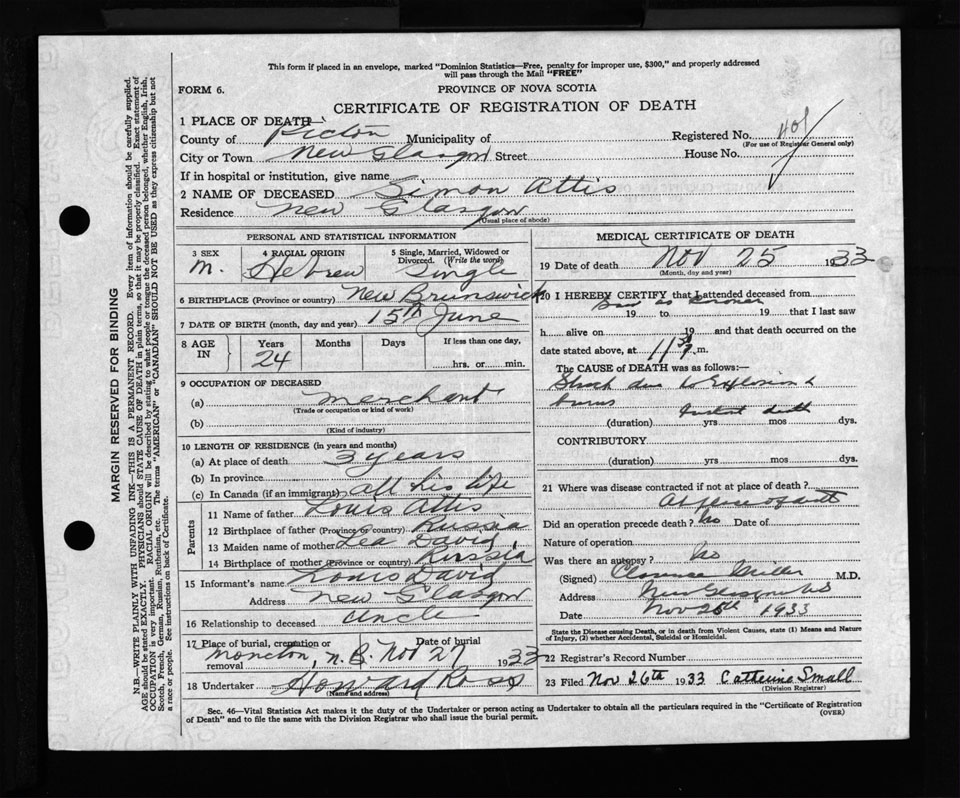 This form if placed in an envelope, marked "Dominion Statistics—Free, penalty for improper use, $300," and properly addressed
will pass through the Mail "FREE"
FORM 6.
PROVINCE OF NOVA SCOTIA
CERTIFICATE OF REGISTRATION OF DEATH
1 PLACE OF DEATH—
County of Pictou Municipality of
Registered No. 401
(For use of Registrar General only)
City or Town New Glasgow Street House No.
If in hospital or institution, give name
2 NAME OF DECEASED Simon Attis
Residence New Glasgow
(Usual place of abode)
PERSONAL AND STATISTICAL INFORMATION
3 SEX 4 RACIAL ORIGIN 5 Single, Married, Widowed or Divorced. (Write the word)
M. Hebrew Single
6 BIRTHPLACE (Province or country) New Brunswick
7 DATE OF BIRTH (month, day and year) 15th June
8 AGE IN Years Months Days If less than one day,
24 hrs. or min.
9 OCCUPATION OF DECEASED
(a) merchant
(Trade or occupation or kind of work)
(b)
(Kind of industry)
10 LENGTH OF RESIDENCE (in years and months)
(a) At place of death 3 years
(b) In province
(c) In Canada (if an immigrant) all his life
Parents
11 Name of father Louis Attis
12 Birthplace of father (Province or country) Russia
13 Maiden name of mother Lea David
14 Birthplace of mother (Province or country) Russia
15 Informant's name Louis David
Address New Glasgow
16 Relationship to deceased Uncle
17 Place of burial, cremation or removal Date of burial
Moncton, N.B. Nov 27 1933
18 Undertaker Howard Ross
(Name and address)
MEDICAL CERTIFICATE OF DEATH
19 Date of death Nov 25 1933
(Month, day and year)
20 I HEREBY CERTIFY that I attended deceased from
as Coroner
19 to 19 that I last saw
h alive on 19 and that death occurred on the
date stated above, at 11 m.
The CAUSE of DEATH was as follows:—
Shock due to Explosion &
burns Instant death
(duration) yrs mos dys.
CONTRIBUTORY
(duration) yrs mos dys.
21 Where was disease contracted if not at place of death?
At place of death
Did an operation precede death? No Date of
Nature of operation
Was there an autopsy? No
(Signed) Clarence Miller M.D.
Address New Glasgow NS
Date Nov 26th 1933
State the Disease causing Death, or in death from Violent Causes, state (1) Means and Nature
of Injury, (2) whether Accidental, Suicidal or Homicidal.
22 Registrar's Record Number
23 Filed Nov 26th 1933 Catherine Small
(Division Registrar)
Sec. 46—Vital Statistics Act makes it the duty of the Undertaker or person acting as Undertaker to obtain all the particulars required in the "Certificate of Registration
of Death" and to file the same with the Division Registrar who shall issue the burial permit.
(OVER)
MARGIN RESERVED FOR BINDING
N.B.—WRITE PLAINLY WITH UNFADING INK—THIS IS A PERMANENT RECORD. Every item of information should be carefully supplied.
AGE should be stated EXACTLY. PHYSICIANS should STATE CAUSE OF DEATH in plain terms, so that it may be properly classified. Exact statement of
OCCUPATION is very important. RACIAL ORIGIN will be described by stating to what people or tongue the deceased person belonged, whether English, Irish,
Scotch, French, German, Russian, Ruthenian, etc. The terms "AMERICAN" or "CANADIAN" SHOULD NOT BE USED as they express citizenship but not
a race or people. See instructions on back of Certificate.